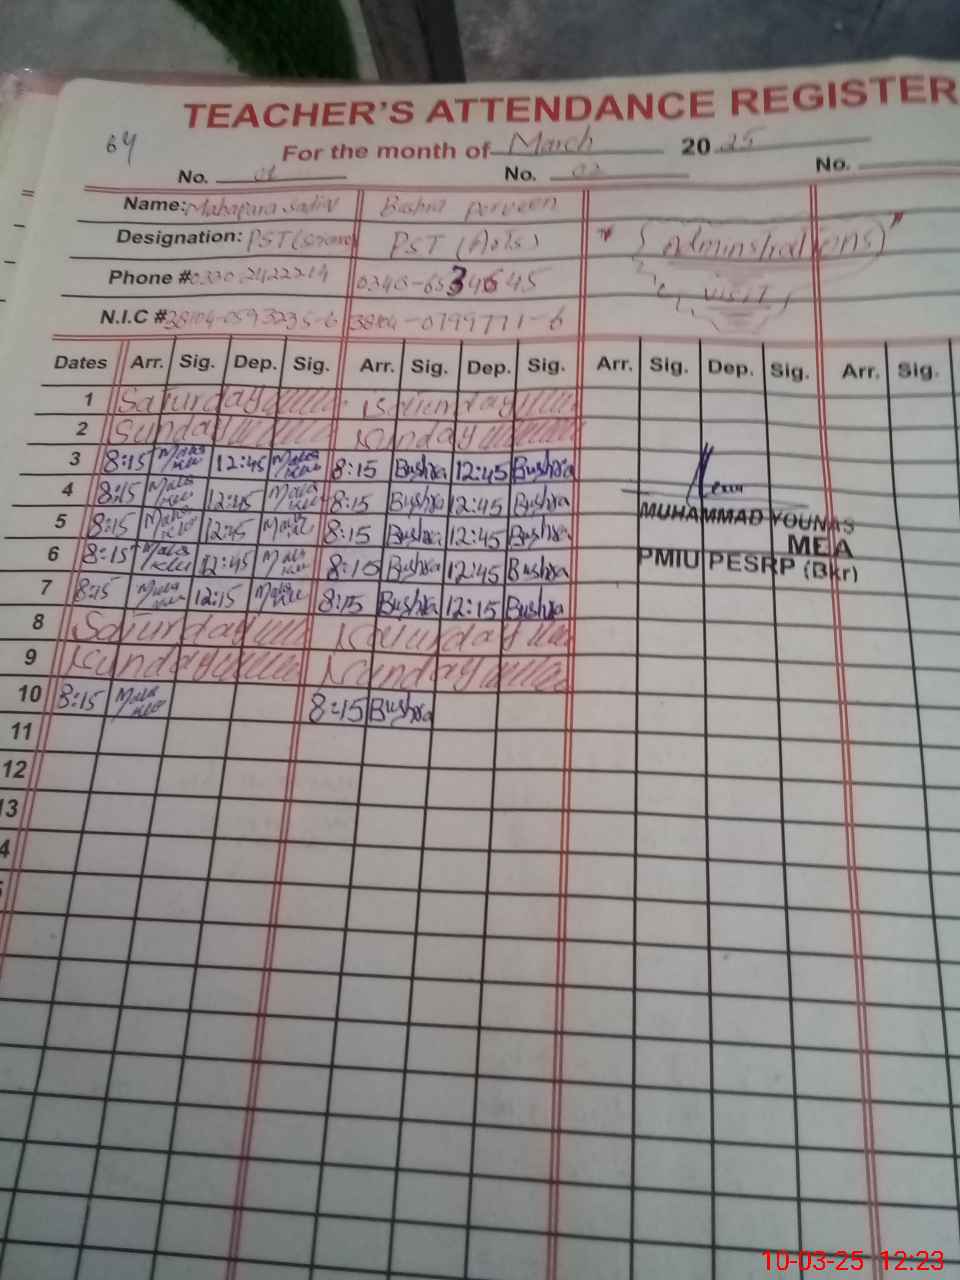 TEACHER'S ATTENDANCE REGISTER
64
For the month of March 2025
No. 01 No. 02 No.
Name: Mahapara Sadiq Bushra Perveen
Designation: PST (Science) PST (Arts) " Adminstrations "
Phone # 0330-2422219 0343-6534645 VISIT
N.I.C # 38104-0593235-6 38104-0799771-6
Dates Arr. Sig. Dep. Sig. Arr. Sig. Dep. Sig. Arr. Sig. Dep. Sig. Arr. Sig.
1 Saturday Saturday
2 Sunday Sunday
3 8:15 12:45 8:15 Bushra 12:45 Bushra
4 8:15 12:45 8:15 Bushra 12:45 Bushra
MUHAMMAD YOUNAS
5 8:15 12:45 8:15 Bushra 12:45 Bushra
MEA
6 8:15 12:45 8:15 Bushra 12:45 Bushra
PMIU PESRP (Bkr)
7 8:15 12:15 8:15 Bushra 12:15 Bushra
8 Saturday Saturday
9 Sunday Sunday
10 8:15 8:15 Bushra
11
12
13
4
5
10-03-25 12:23